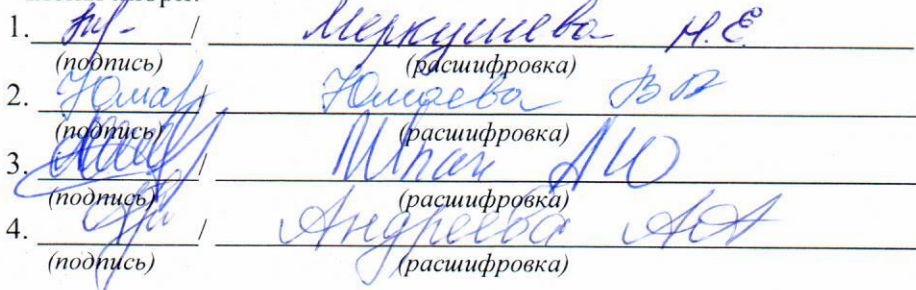 1. / Меркушева Н.Е.
(подпись) (расшифровка)
2. Юмаг / Юмаева В В
(подпись) (расшифровка)
3. / Шпак А Ю
(подпись) (расшифровка)
4. / Андреева А А
(подпись) (расшифровка)